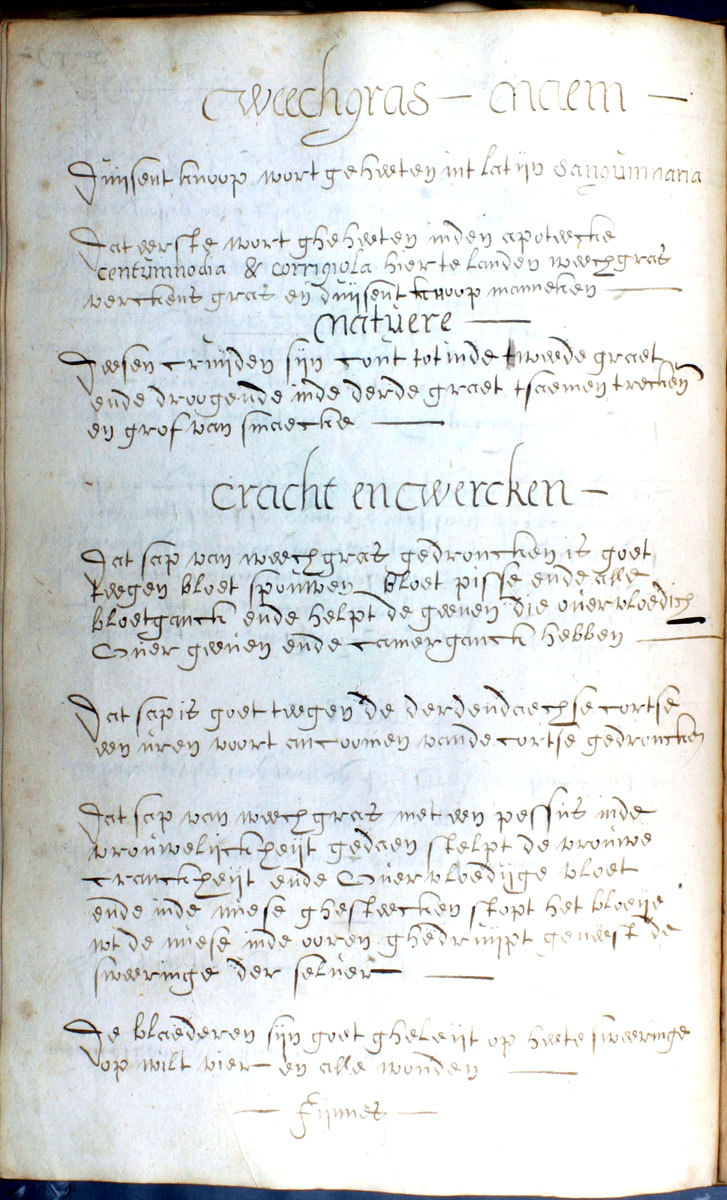 Weechgras — Naem —
Duijsent knoop wort geheeten int latijn Sanguinnaria
Dat eerste wort gheheeten inden apoteecke
Centumnodia & corrigiola hier te landen weechgras
verckens gras en duijsent knoop manneken —
Natuere —
Deesen cruijden sijn cout tot inde tweede graet
ende droogende inde derde graet tsaemen trecken
en grof van smaecke —
Cracht en Wercken —
Dat sap van weechgras gedroncken is goet
teegen bloet spouwen bloet pisse ende alle
bloetganck ende helpt de geenen die overvloedich
Over geeven ende camerganck hebben —
Dat sap is goet teegen de derdendaechse cortse
een uren voort ancoomen vande cortse gedroncken
Dat sap van weechgras met een pessus inde
vrouwelijckheijt gedaen stelpt de vrouwe
cranckheijt ende Overvloedijge vloet
ende inde nuese ghesteecken stopt het bloeije
wt de nuese inde ooren ghedruijpt geneest de
sweeringe der selver —
De blaederen sijn goet gheleijt op heete sweeringe
op wilt vier en alle wonden —
— Fijnnes —